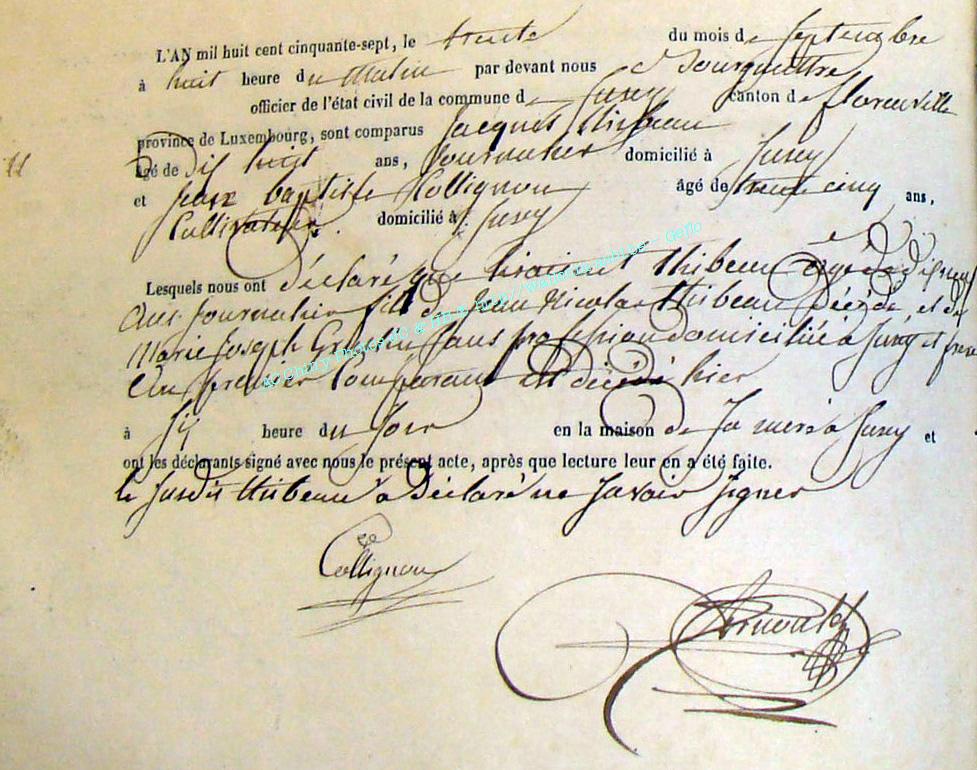 L'AN mil huit cent cinquante-sept, le trente du mois de Septembre
à huit heure du Matin par devant nous
officier de l'état civil de la commune de Jusey canton de florenville
province de Luxembourg, sont comparus Jacques Thibeau
11
âgé de dix huit ans, Journalier domicilié à Jusey
et Jean baptiste Collignon âgé de trente cinq ans,
Cultivateur domicilié à Jusey
Lesquels nous ont déclaré que Thibeau agé de
ans Journalier fils de Jean Nicolas Thibeau Décédé, et de
Marie Joseph Sans profession domiciliée à Jusey et frere
du premier Comparant est décédé hier
à heure du Soir en la maison de Sa mere à Jusey et
ont les déclarants signé avec nous le présent acte, après que lecture leur en a été faite.
le Susdit Thibeau a Déclaré ne Savoir Signer
Collignon